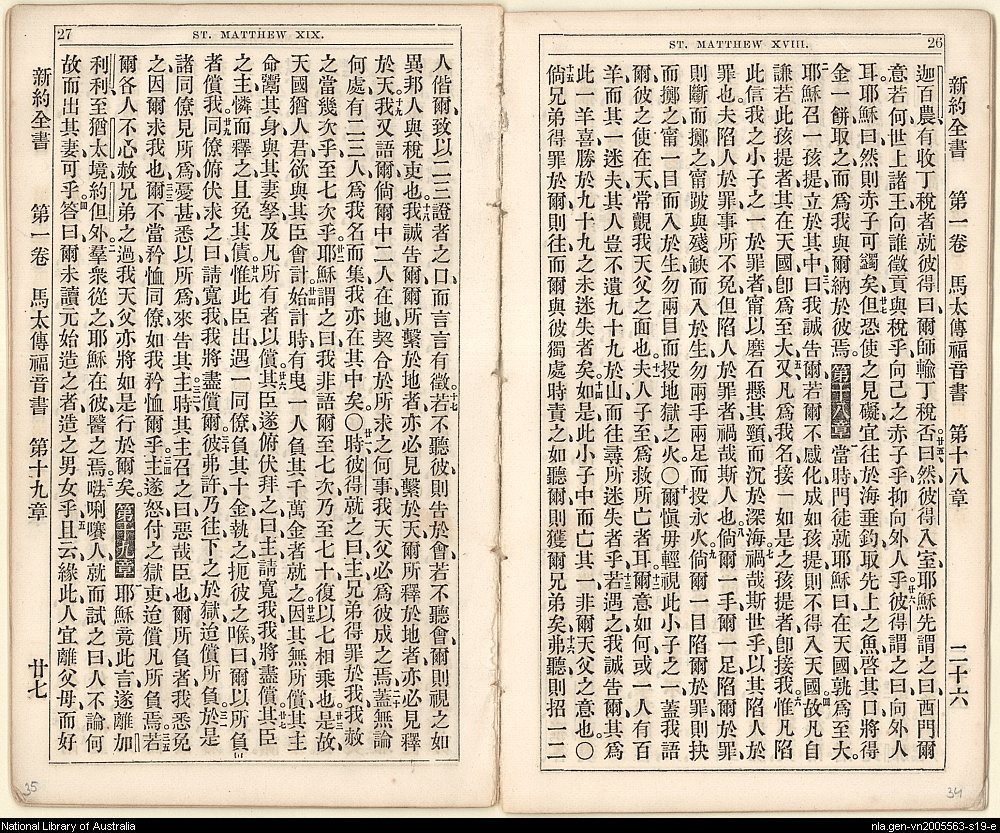 26
ST. MATTHEW XVIII.
新約全書 第一卷 馬太傳福音書 第十八章 二十六
迦百農、有收丁稅者就彼得曰、爾師輸丁稅否、曰然、彼得入室、耶穌先謂之曰、西門爾
意若何、世上諸王向誰徵貢與稅乎、向己之赤子乎、抑向外人乎、彼得謂之曰、向外人
耳、耶穌曰、然則赤子可蠲矣、但恐使之見礙、宜往於海垂釣、取先上之魚、啓其口、將得
金一餅、取之而爲我與爾納於彼焉。第十八章 當時門徒就耶穌曰、在天國孰爲至大、
耶穌召一孩提立於其中、曰、我誠告爾、若爾不感化成如孩提、則不得入天國、故凡自
謙若此孩提者、其在天國卽爲至大、又凡爲我名接一如是之孩提者、卽接我、惟凡陷
此信我之小子之一於罪者、甯以磨石懸其頸、而沉於深海、禍哉斯世乎、以其陷人於
罪也、夫陷人於罪事所不免、但陷人於罪者禍哉斯人也、倘爾一手爾一足陷爾於罪、
則斷而擲之、甯跛與殘缺而入於生、勿兩手兩足而投永火、倘爾一目陷爾於罪、則抉
而擲之、甯一目而入於生、勿兩目而投地獄之火、〇愼毋輕視此小子之一、蓋我語
爾、彼之使在天常覿我天父之面也、夫人子至、爲救所亡者耳、爾意如何、或一人有百
羊、而其一迷失、其人豈不遺九十九於山、而往尋所迷失者乎、若遇之、我誠告爾、其爲
此一羊喜勝於九十九之未迷失者矣、如是此小子中而亡其一、非爾天父之意也、〇
倘兄弟得罪於爾、則往而於爾與彼獨處時責之、如聽爾、則獲爾兄弟矣、弗聽、則招一二
34
ST. MATTHEW XIX.
27
人偕爾、致以二三證者之口、而言言有徵、若不聽彼、則告於會、若不聽會、爾則視之如
異邦人與稅吏也、我誠告爾、爾所繫於地者、亦必見繫於天、爾所釋於地者、亦必見釋
於天、我又語爾、倘爾中二人在地契合、於所求之何事、我天父必爲彼成之焉、蓋無論
何處、有二三人爲我名而集、我亦在其中矣、〇時彼得就之曰、主、兄弟得罪於我、我赦
之當幾次乎、至七次乎、耶穌謂之曰、我非語爾至七次、乃至七十復以七相乘也、是故
天國猶人君欲與其臣會計、始計時、有曳一人負其千萬金者就之、因其無所償、其主
命鬻其身與其妻孥、及凡所有者以償、其臣遂俯伏拜之曰、主、請寬我、我將盡償、其臣
之主憐而釋之、且免其債、惟此臣出、遇一同僚負其十金、執之、扼彼之喉曰、爾以所負
者償我、同僚俯伏求之曰、請寬我、我將盡償爾、彼弗許、乃往下之於獄、迨償所負、於是
諸同僚見所爲、憂甚、悉以所爲來告其主、時其主召之曰、惡哉臣也、爾所負者、我悉免
之、因爾求我也、爾不當矜恤同僚、如我矜恤爾乎、主遂怒、付之獄吏、迨償凡所負焉、若
爾各人不心赦兄弟之過、我天父亦將如是行於爾矣。第十九章 耶穌竟此言、遂離加
利利、至猶太境約但外、羣衆從之、耶穌在彼醫之焉、𠵽唎㘔人就而試之曰、人不論何
故而出其妻可乎、答曰、爾未讀元始造之者、造之男女乎、且云緣此人宜離父母、而好
新約全書 第一卷 馬太傳福音書 第十九章 廿七
35
National Library of Australia
nla.gen-vn2005563-s19-e